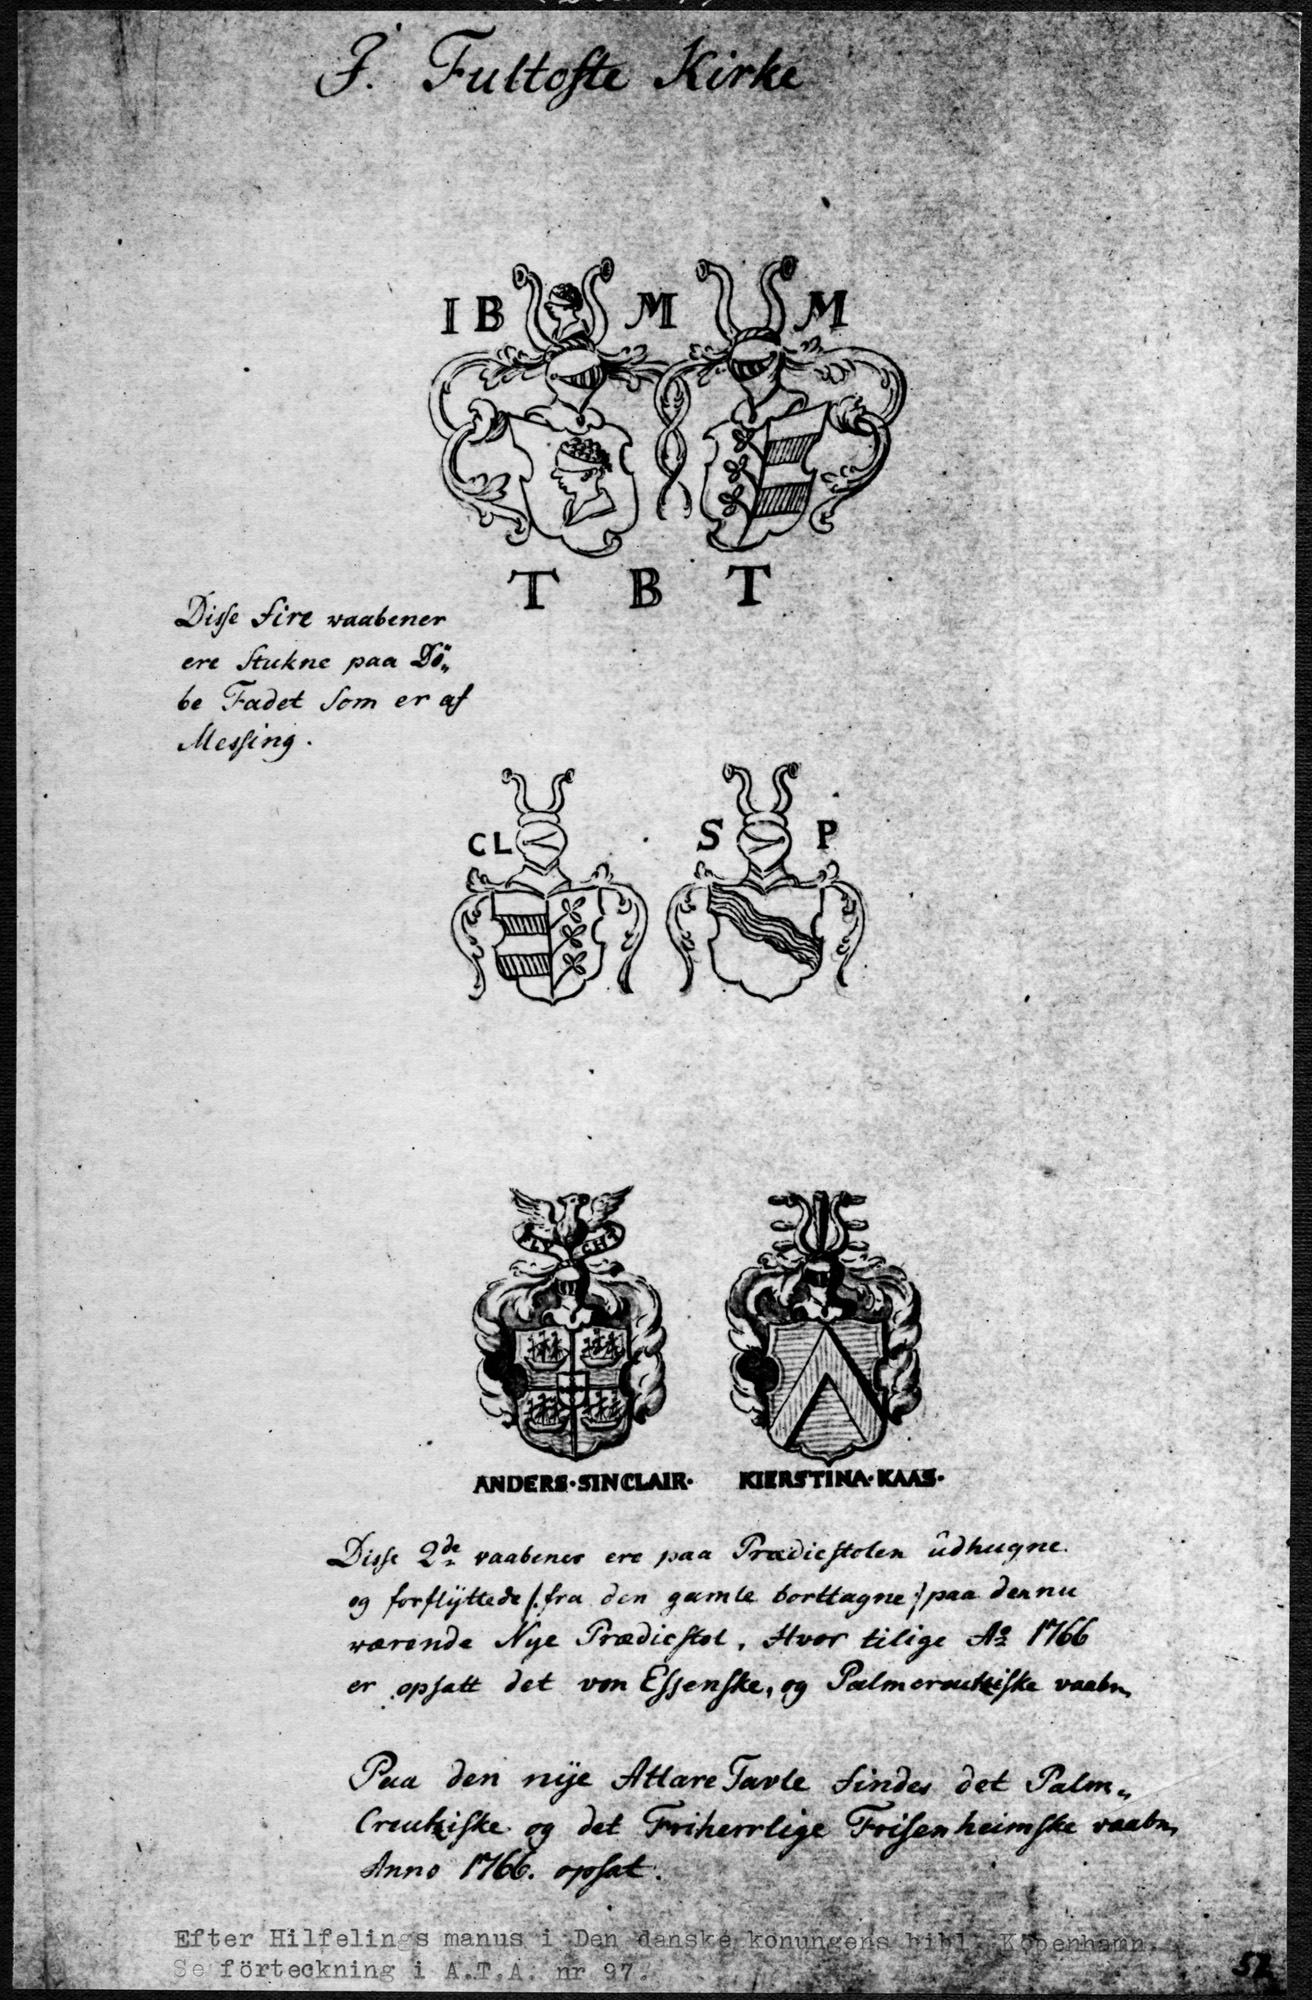 I. Fultofte Kirke
I B M M
T B T
Disse fire vaabener
ere stukne paa Dö„
be Fadet som er af
Messing.
CL S P
FLY CHT
ANDERS·SINCLAIR· KIERSTINA·KAAS·
Disse 2de vaabener ere paa Prædicstolen ûdhugne.
og forflÿttede /: fra den gamle borttagne :/ paa den nu
værende Nye Prædicstol, Hvor tilige Ao 1766
er opsatt det von Essenske, og Palmcreutziske vaabn,
Paa den nÿe Altare Tavle findes det Palm„
Creutziske og det Friherrlige Frisenheimske vaabn,
Anno 1766. opsat.
Efter Hilfelings manus i Den danske konungens bibl. Köpenhamn.
Se förteckning i A.T.A. nr 97.
52